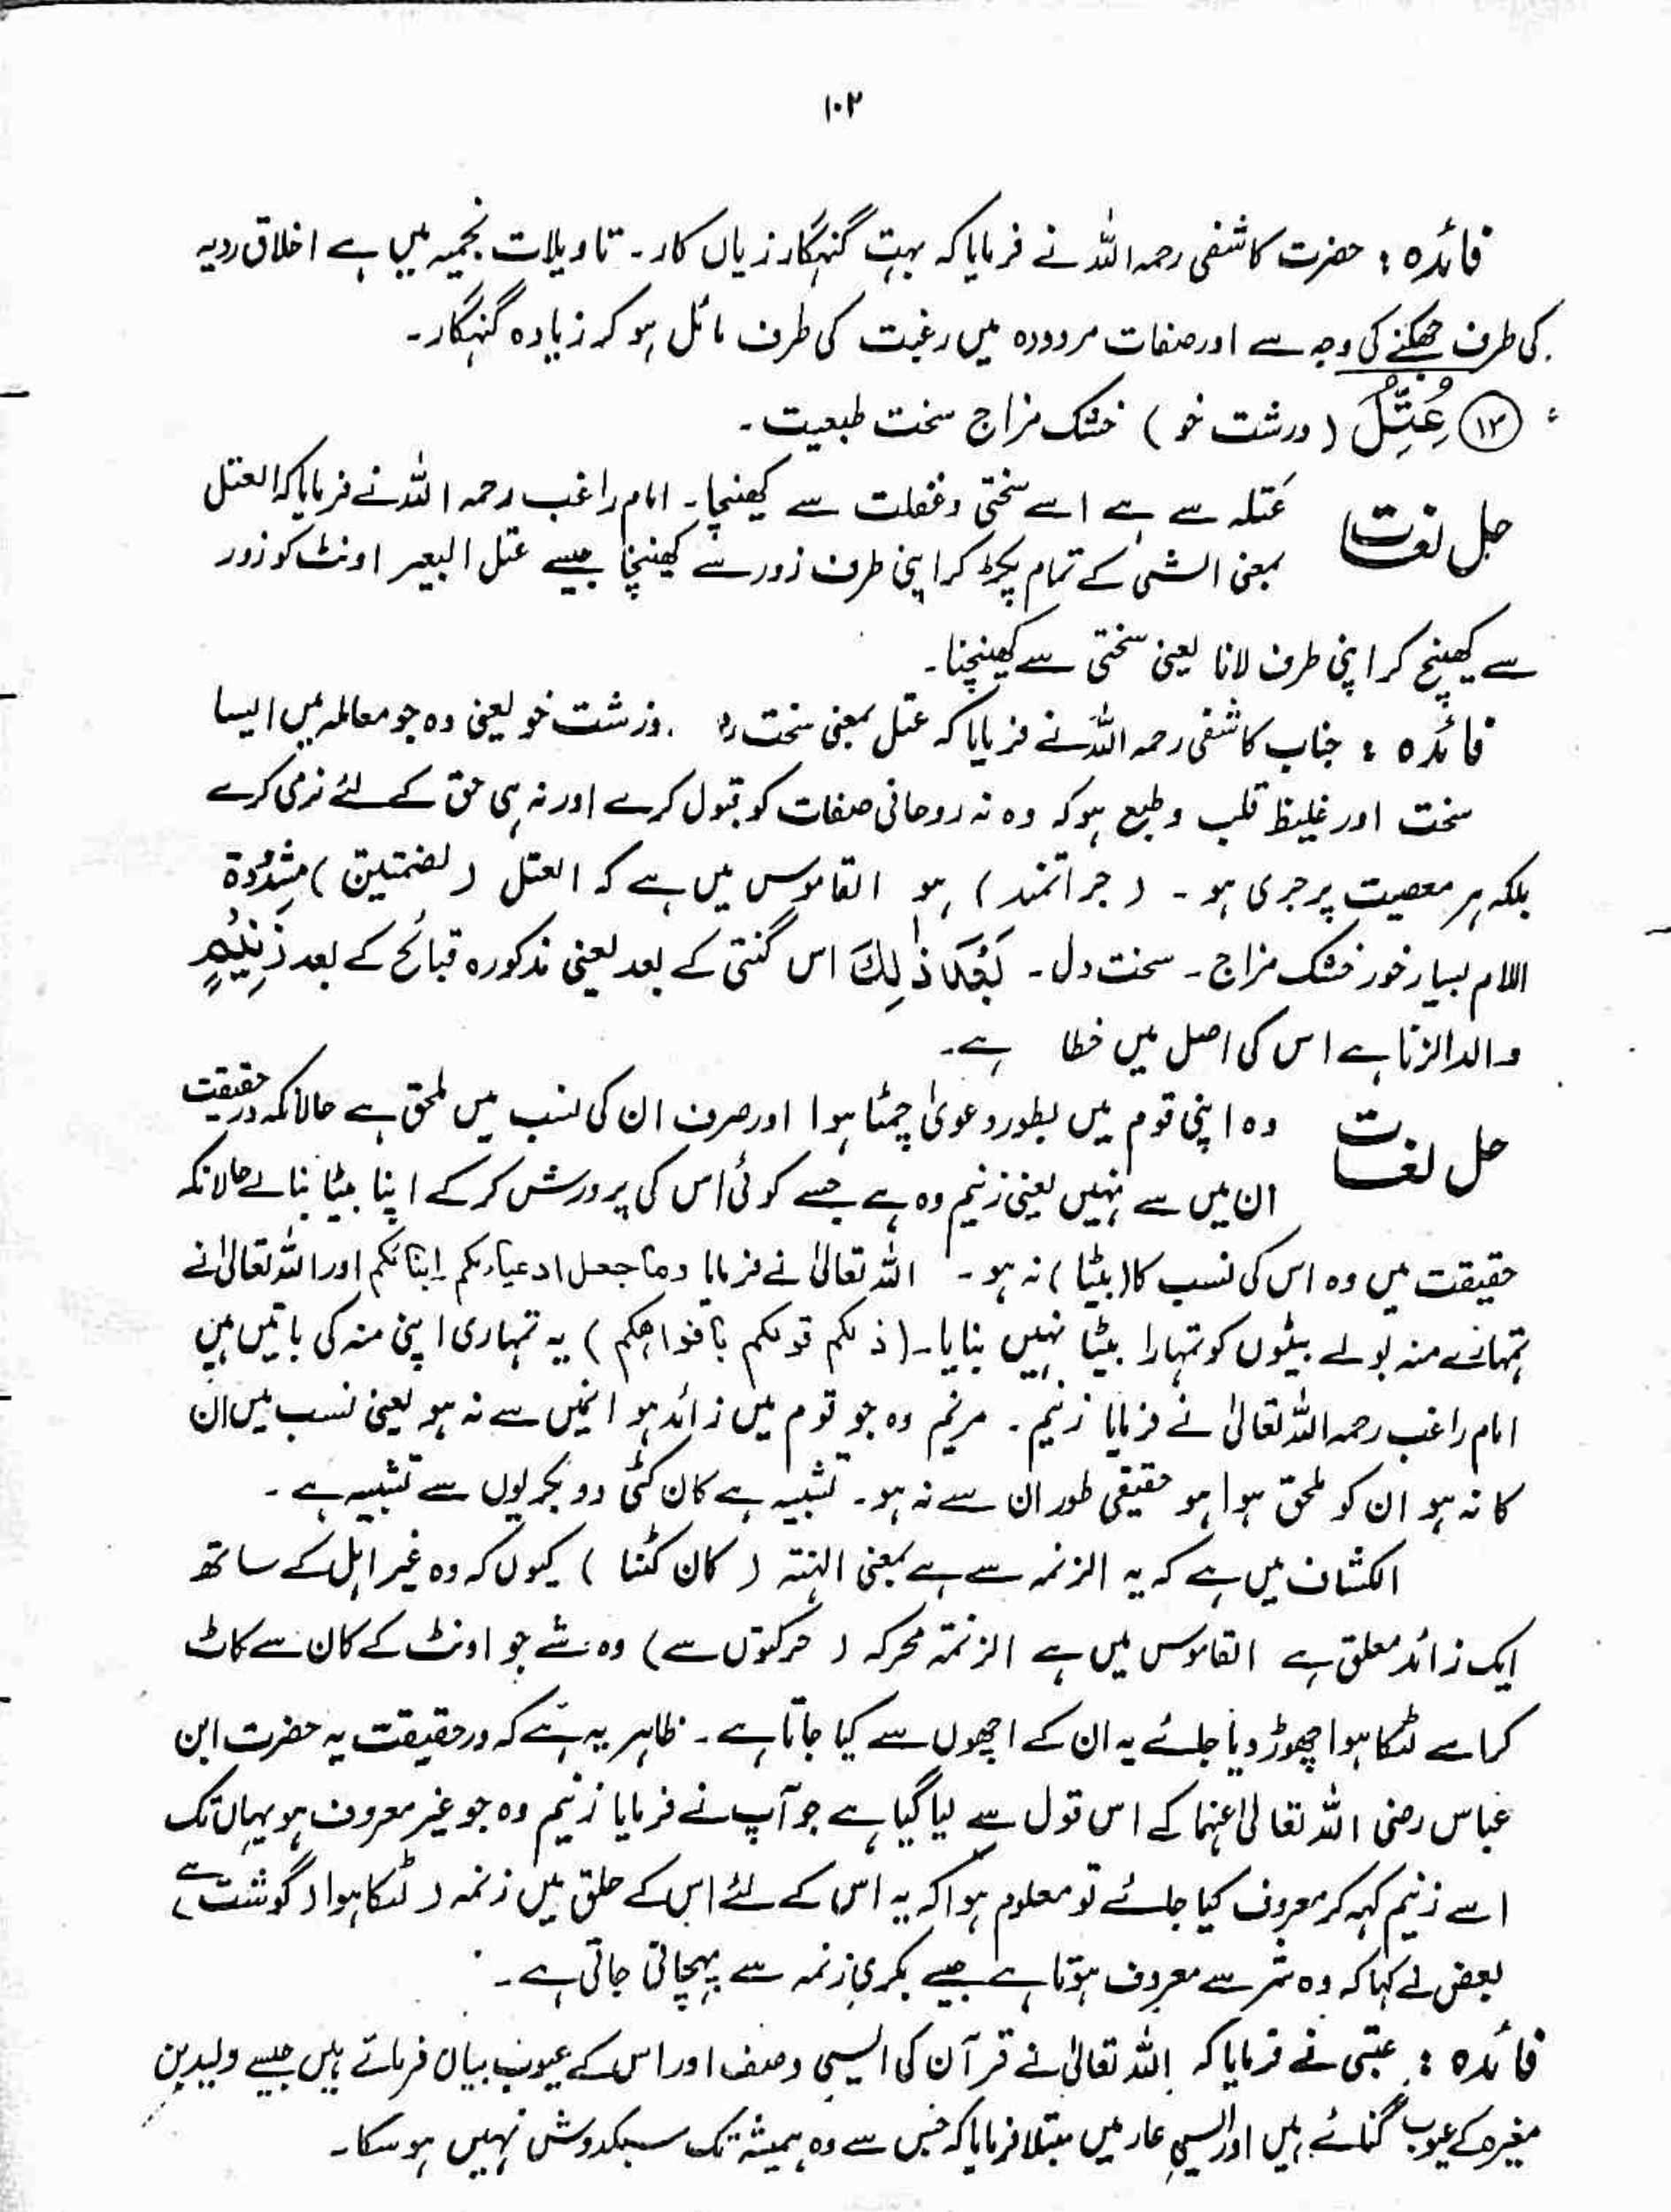 ۱۰۲
فائدہ : حضرت کاشفی رحمہ اللہ نے فرمایا کہ بہت گنہگار زیاں کار۔ تاویلات نجمیہ میں ہے اخلاق ردیہ
کی طرف جھکنے کی وجہ سے اور صفات مردودہ میں رغبت کی طرف مائل ہو کر زیادہ گنہگار۔
۱۲ عُتُلٍّ (درشت خو) خشک مزاج سخت طبعیت۔
حل لغات
عتلہ سے ہے اسے سختی وغفلت سے کھینچا۔ امام راغب رحمہ اللہ نے فرمایا کہ العتل
بمعنی الشئ کے تمام پکڑ کر اپنی طرف زور سے کھینچنا جیسے عتل البعیر اونٹ کو زور
سے کھینچ کر اپنی طرف لانا یعنی سختی سے کھینچنا۔
فائدہ : جناب کاشفی رحمہ اللہ نے فرمایا کہ عتل بمعنی سخت رو . وزشت خو یعنی وہ جو معاملہ میں ایسا
سخت اور غلیظ قلب وطبع ہو کہ وہ نہ روحانی صفات کو قبول کرے اور نہ ہی حق کے لئے نرمی کرے
بلکہ ہر معصیت پر جری ہو۔ (جراتمند) ہو القاموس میں ہے کہ العتل (لضمتین) مشددۃ
اللام بسیار خور خشک مزاج۔ سخت دل۔ بَعْدَ ذٰلِكَ اس گنتی کے بعد یعنی مذکورہ قبائح کے بعد زَنِیْمٍ
والد الزنا ہے اس کی اصل میں خطا ہے۔
حل لغات
وہ اپنی قوم میں بطور دعویٰ چمٹا ہوا اور صرف ان کی نسب میں ملحق ہے حالانکہ درحقیقت
ان میں سے نہیں یعنی زنیم وہ ہے جسے کوئی اس کی پرورش کر کے اپنا بیٹا بنالے حالانکہ
حقیقت میں وہ اس کی نسب کا (بیٹا) نہ ہو۔ اللہ تعالیٰ نے فرمایا وما جعل ادعیاءکم ابنائکم اور اللہ تعالیٰ نے
تمہارے منہ بولے بیٹوں کو تمہارا بیٹا نہیں بنایا۔ (ذلکم قولکم بافواھکم) یہ تمہاری اپنی منہ کی باتیں ہیں
امام راغب رحمہ اللہ تعالیٰ نے فرمایا زنیم۔ مزنم وہ جو قوم میں زائد ہو انمیں سے نہ ہو یعنی نسب میں ان
کا نہ ہو ان کو ملحق ہوا ہو حقیقی طور ان سے نہ ہو۔ تشبیہ ہے کان کٹی دو بکریوں سے تشبیہ ہے۔
الکشاف میں ہے کہ یہ الزنمہ سے ہے بمعنی الہنتہ (کان کٹنا) کیوں کہ وہ غیر اہل کے ساتھ
ایک زائد معلق ہے القاموس میں ہے الزنمۃ محرکہ (حرکتوں سے) وہ شے جو اونٹ کے کان سے کاٹ
کر اسے لٹکا ہوا چھوڑ دیا جائے یہ ان کے اچھوں سے کیا جاتا ہے۔ ظاہر یہ ہے کہ درحقیقت یہ حضرت ابن
عباس رضی اللہ تعالیٰ عنہما کے اس قول سے لیا گیا ہے جو آپ نے فرمایا زنیم وہ جو غیر معروف ہو یہاں تک
اسے زنیم کہہ کر معروف کیا جائے تو معلوم ہوا کہ یہ اس کے لئے اس کے حلق میں زنمہ (لٹکا ہوا گوشت) ہے
بعض نے کہا کہ وہ شر سے معروف ہوتا ہے جیسے بکری زنمہ سے پہچانی جاتی ہے۔
فائدہ : عتبی نے فرمایا کہ اللہ تعالیٰ نے قرآن کی ایسی وصف اور اس کے عیوب بیان فرمائے ہیں جیسے ولید بن
مغیرہ کے عیوب گنائے ہیں اور ایسی عار میں مبتلا فرمایا کہ جس سے وہ ہمیشہ تک سبکدوش نہیں ہو سکا۔